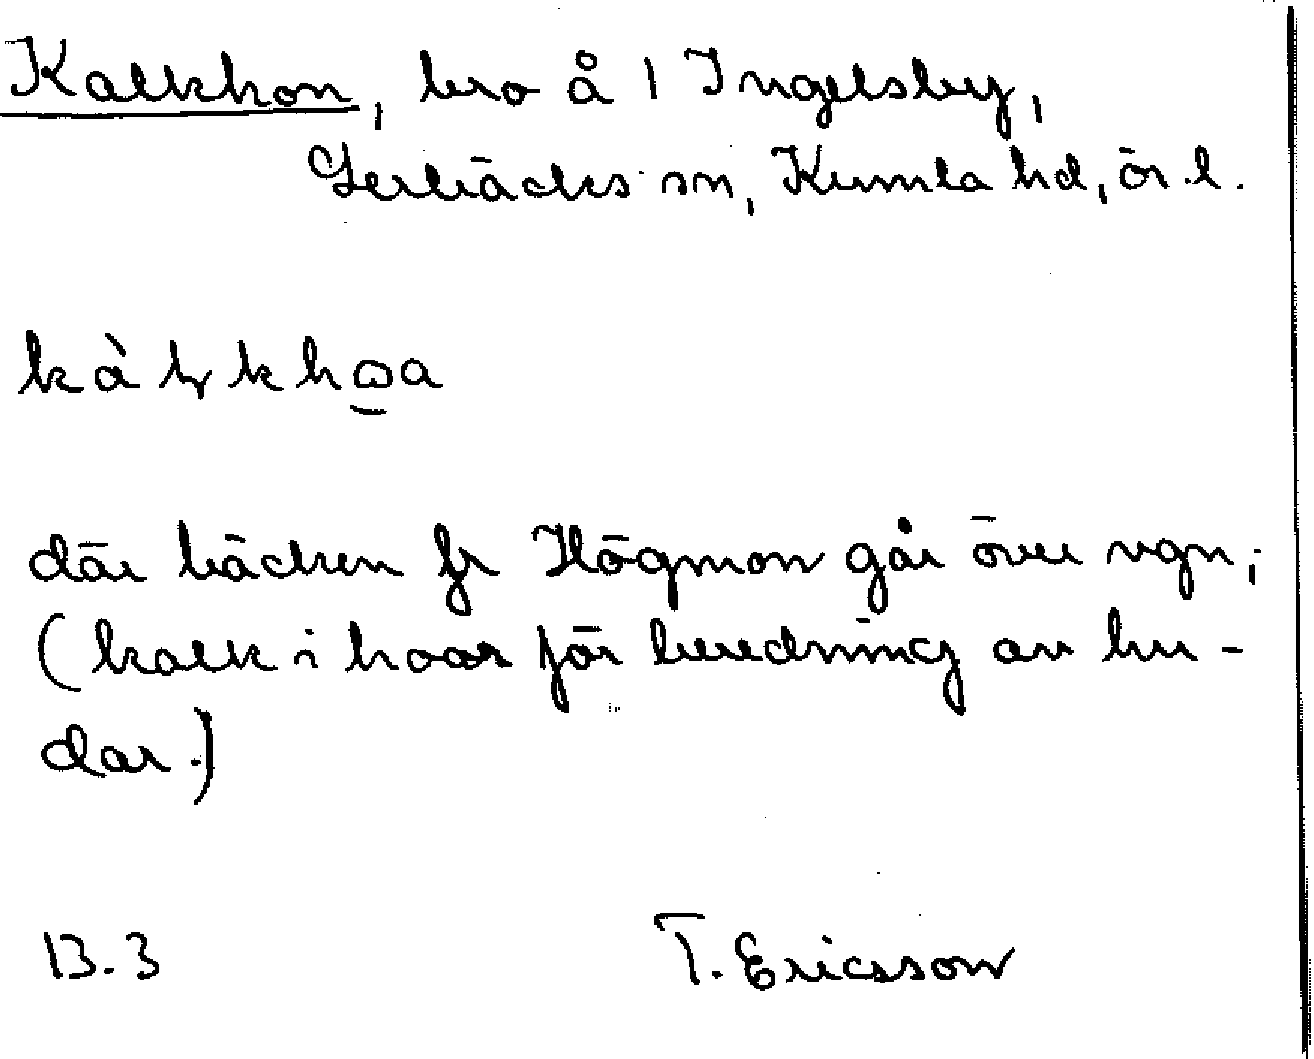 Kalkhon, bro å 1 Ingelsby,
Lerbäcks sn, Kumla hd, ör.l.
där bäcken fr Högmon går över vgn;
(kalk i hoar för beredning av hu-
dar.)
13.3 T. Ericsson